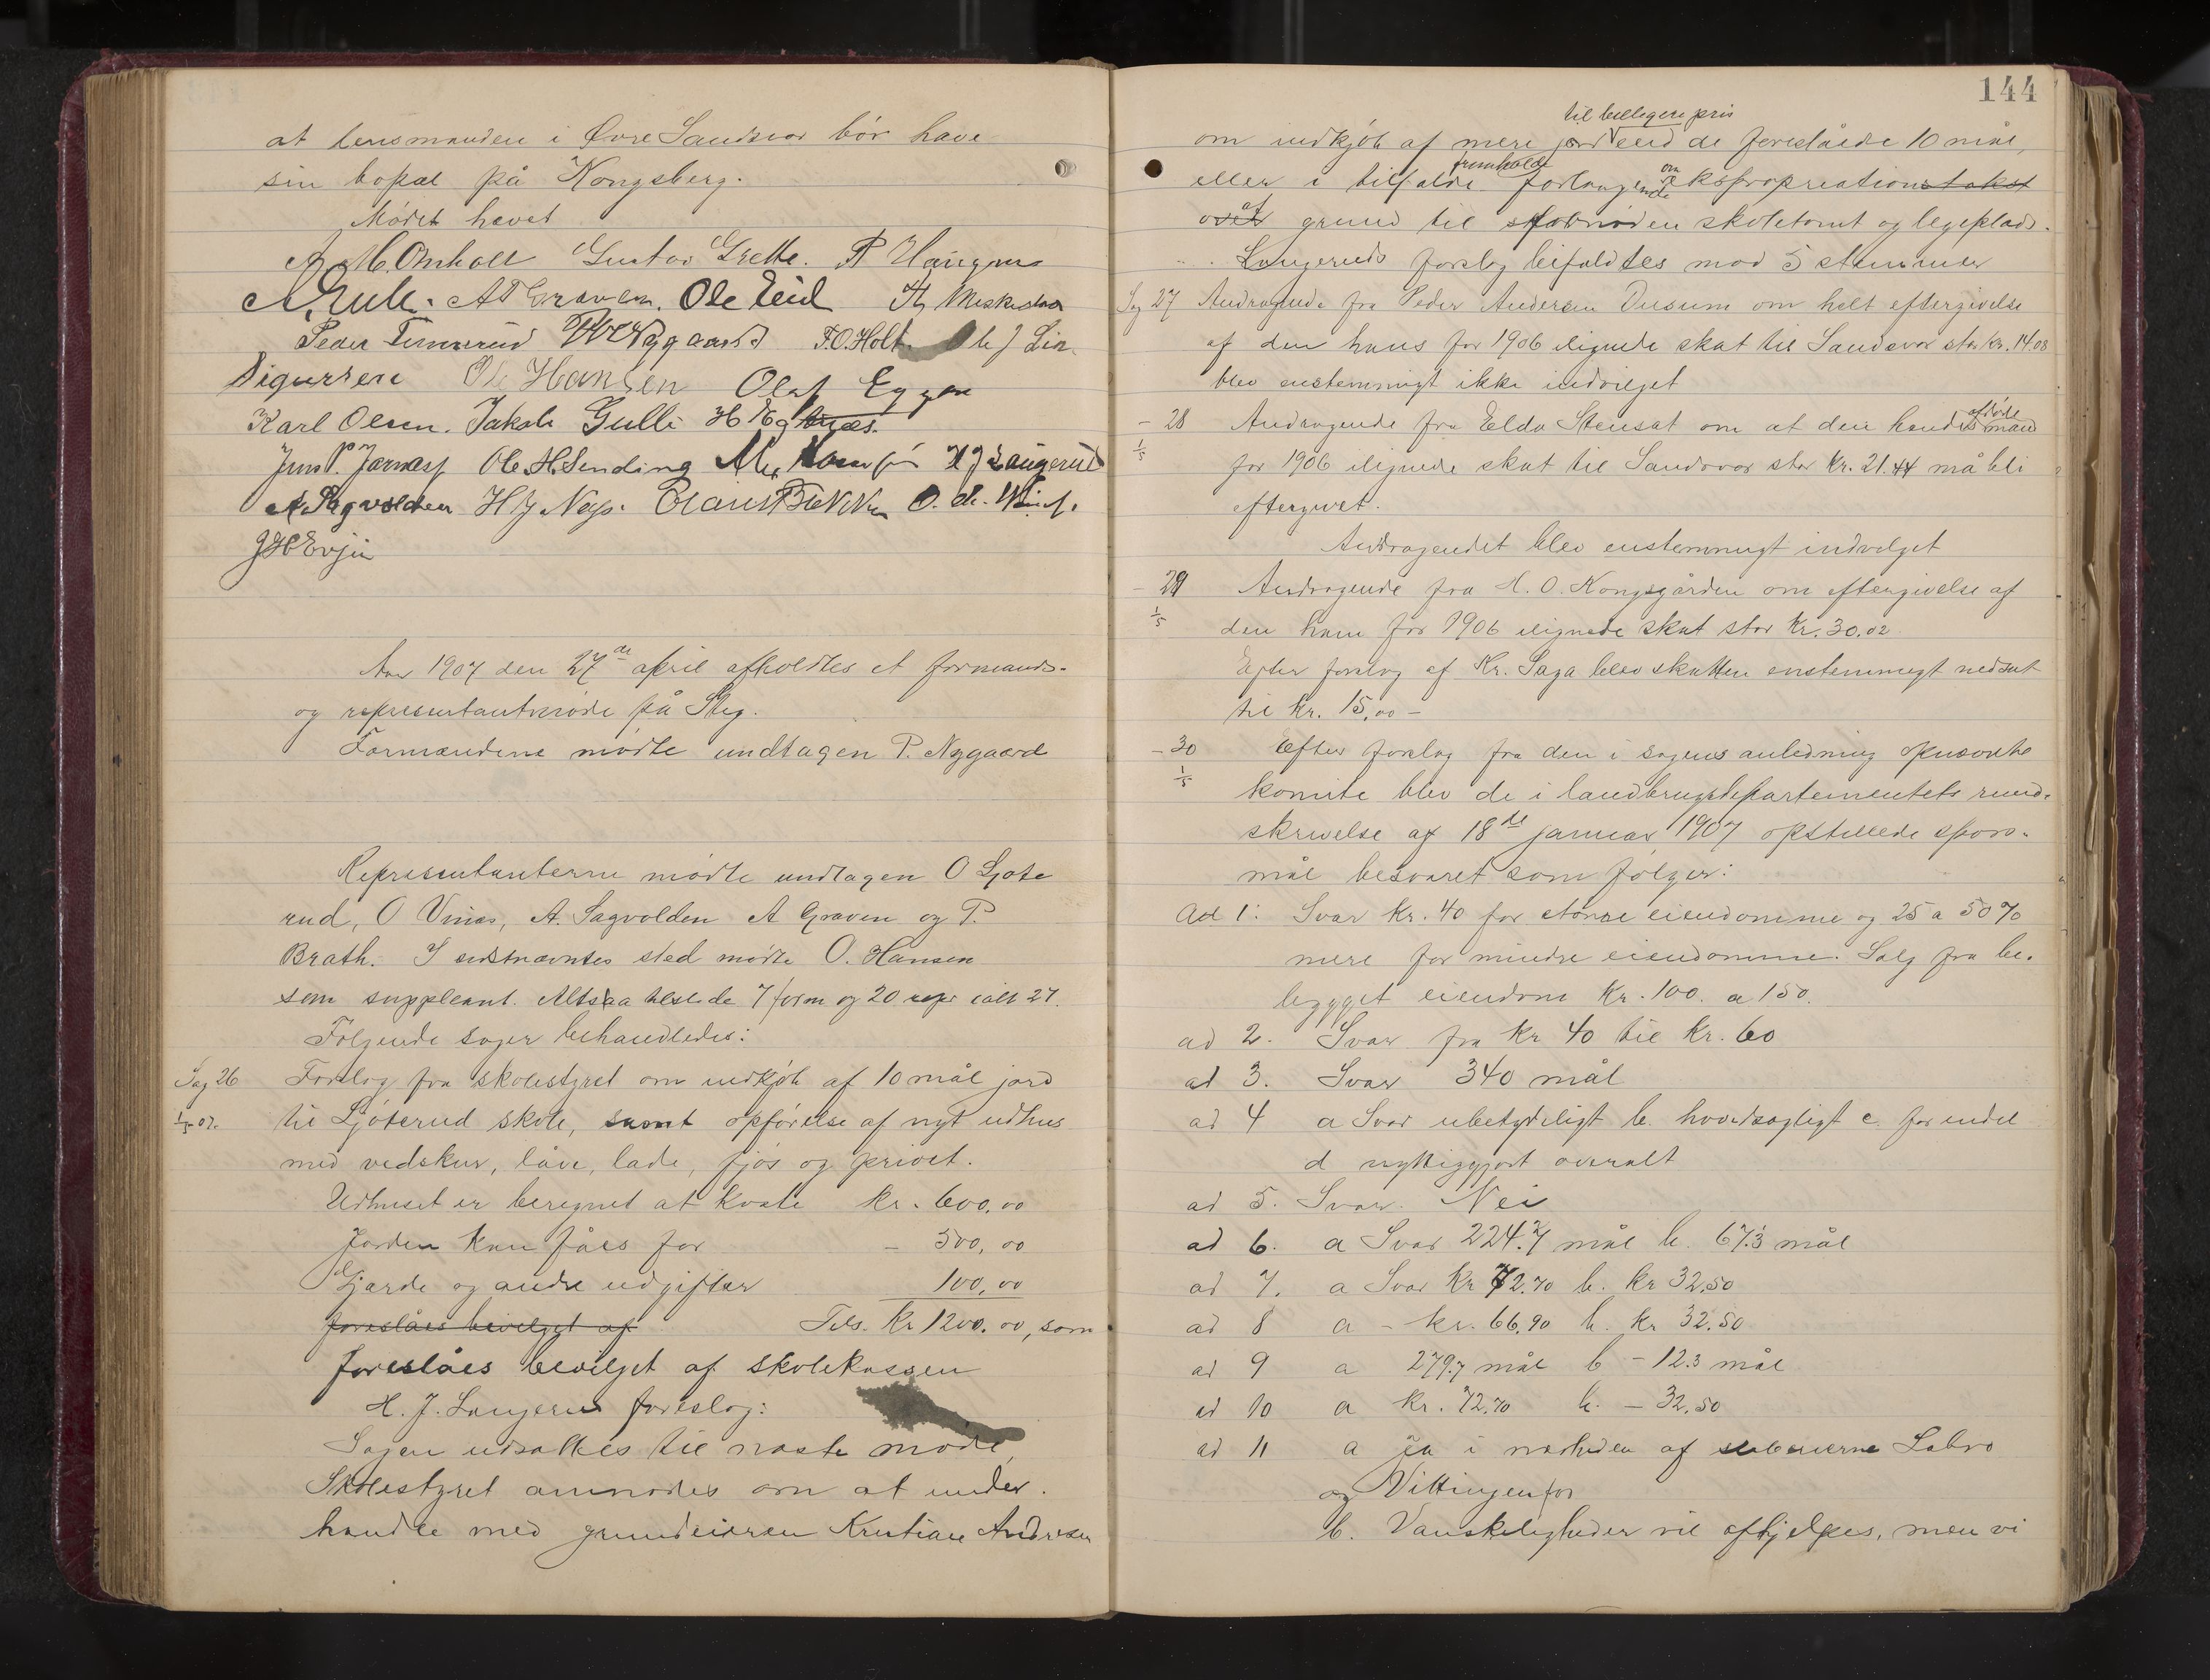 at lensmanden i Øvre Sandsvær bør have
sin bopæl på Kongsberg.
Mødet hævet
A. M. Omholt Gustav Grette. P Haugen
A. Rule. A T Graven. Ole Eid Th Meskestad
Peder Temmerud P Nyggaard T.O. Holt Ole J Lia
Sigursen Ole Hansen Olaf Eggen
Karl Olsen. Jakob Gulli H
Jens P. Jarnæs Ole H. Sending H J Langerud
A. Sagvolden H J Olaus Bækken
J H Evju
Aar 1907 den 27de april afholdtes et formands-
og representantmøde på Steg.
Formændene mødte undtagen P. Nygaard
Representanterne mødte undtagen O Ljøte
rud, O Vinæs, A. Sagvolden A Graven og P.
Brath. I sidstnævntes sted mødte O. Hansen
som suppleant. Altsaa tilstede 7 form og 20 repr ialt 27.
Følgende sager behandledes:
Sag 26 Forslag fra skolestyret om indkjøb af 10 mål jord
1/5 07. til Ljøterud skole, samt opførelse af nyt udhus
med vedskur, låve, lade, fjøs og privet.
Udhuset er beregnet at koste kr. 600,00
Jorden kan fåes for – 500,00
Gjærde og andre udgifter 100,00
foreslåes bevilget af Tils. Kr 1200.00, som
foreslåes bevilget af skolekassen
H. J. Langerud foreslog:
Sagen udsættes til næste møde,
Skolestyret anmodes om at under-
handle med grundeieren Kristian Andersen
144
til billigere pris
om indkjøb af mere jord end de foreslåede 10 mål,
fremholde om
eller i tilfælde forlangende ekspropriationstakst
af
over grund til skoletomt og legeplads.
Langeruds forslag bifaldtes mod 5 stemmer
Sag 27 Andragende fra Peder Andersen Dusum om helt eftergivelse
af den hans for 1906 ilignede skat til Sandsvær stor kr. 14.08
blev enstemmigt ikke indvilget
afdøde
– 28 Andragende fra Elda Stensæt om at den hendes mand
1/5 for 1906 ilignede skat til Sandsvær stor Kr. 21.44 må bli
eftergivet.
Andragendet blev enstemmigt indvilget
– 29 Andragende fra H. O. Kongsgården om eftergivelse af
1/5 den ham for 1906 ilignede skat stor Kr. 30.02
Efter forslag af Kr. Saga blev skatten enstemmigt nedsat
til kr. 15,00 –
– 30 Efter forslag fra den i sagens anledning opnævnte
1/5 komite blev de i landbrugsdepartementets rund-
skrivelse af 18de januar 1907 opstillede spørs-
mål besvaret som følger:
Ad 1: Svar kr. 40 for større eiendomme og 25 a 50 %
mere for mindre eiendomme. Salg fra be-
bygget eiendom Kr. 100. a 150.
ad 2. Svar fra kr 40 til kr. 60
ad 3. Svar 340 mål
ad 4 a Svar ubetydeligt b. hovedsagligt c. for endel
d nyttiggjort overalt
ad 5. Svar. Nei
ad 6. a Svar 224.7 mål b. 67.3 mål
ad 7. a Svar Kr 72.70 b. kr 32.50
ad 8 a – kr. 66.90 b. kr 32.50
ad 9 a 279.7 mål b – 12.3 mål
ad 10 a kr. 72.70 b. – 32.50
ad 11 a Ja i nærheden af sliberierne Labro
og Vittingenfos
b. Vanskeligheder vil afhjelpes, men vi